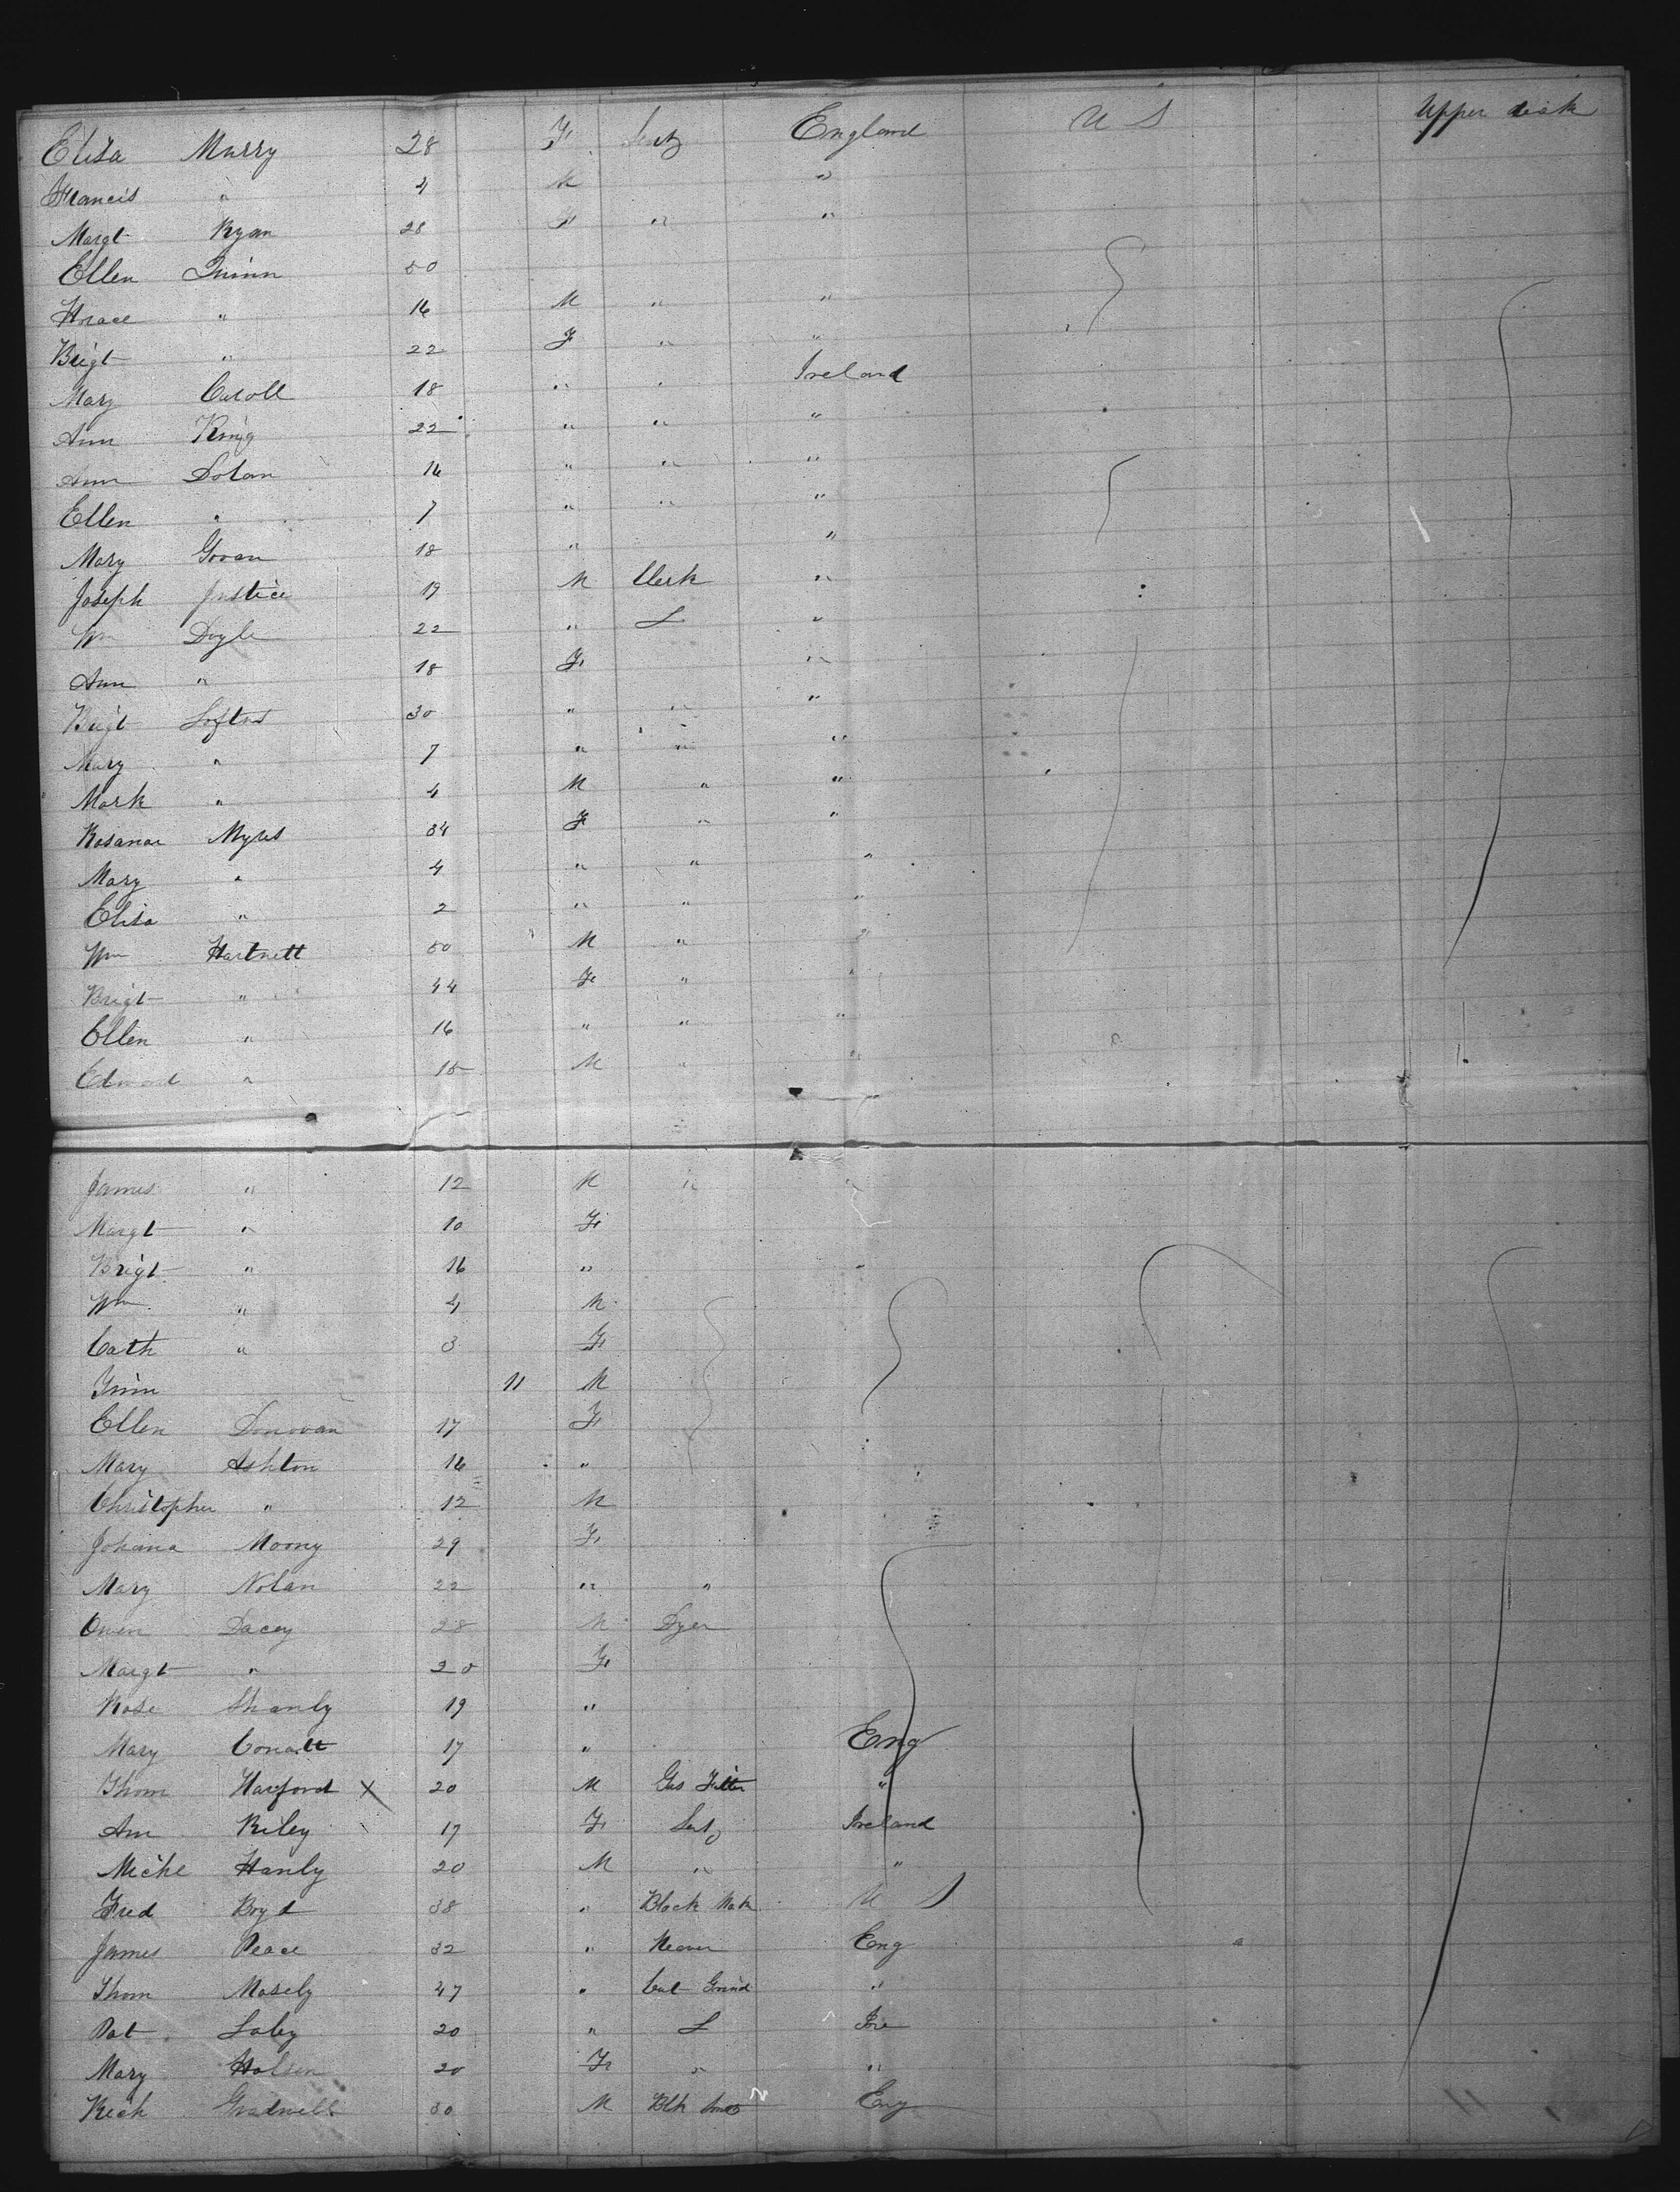 Elisa Murry 28 F England U S Upper desk
Francis " 4 M "
Margt Ryan 28 F " "
Ellen Quinn 50
Horace " 16 M " "
Brigt " 22 F " "
Mary Caroll 18 " " Ireland
Ann King 22 " " "
Ann Dolan 16 " " "
Ellen " 7 " " "
Mary Govan 18 " "
Joseph Justice 19 M Clerk "
Wm Doyle 22 " L "
Ann " 18 F "
Brigt Loftus 30 " " "
Mary " 7 " " "
Mark " 4 M " "
Rosanae Myles 34 F " "
Mary " 4 " " "
Elisa " 2 " " "
Wm Hartnett 50 M " "
Brigt " 44 F " "
Ellen " 16 " " "
Edward " 15 M " "
James " 12 M " "
Margt " 10 F
Brigt " 16 " "
Wm " 4 M
Cath " 3 F
11 M
Ellen Donovan 17 F
Mary Ashton 16 "
Christopher " 12 M
Johana Moony 29 F
Mary Nolan 22 " "
Owen Dacey 28 M Dyer
Margt " 20 F
Rose Shanly 19 "
Mary 17 " Eng
Thom Harford X 20 M Gas Fitter "
Ann Riley 17 F Ireland
Miche Hanly 20 M " "
Fred Boyd 38 " Block Mak U S
James Peace 32 " Eng
Thom Mosely 47 " Cut Grind "
Pat Laby 20 " L Ire
Mary 20 F " "
Rich Gradwell 30 M Blk Eng